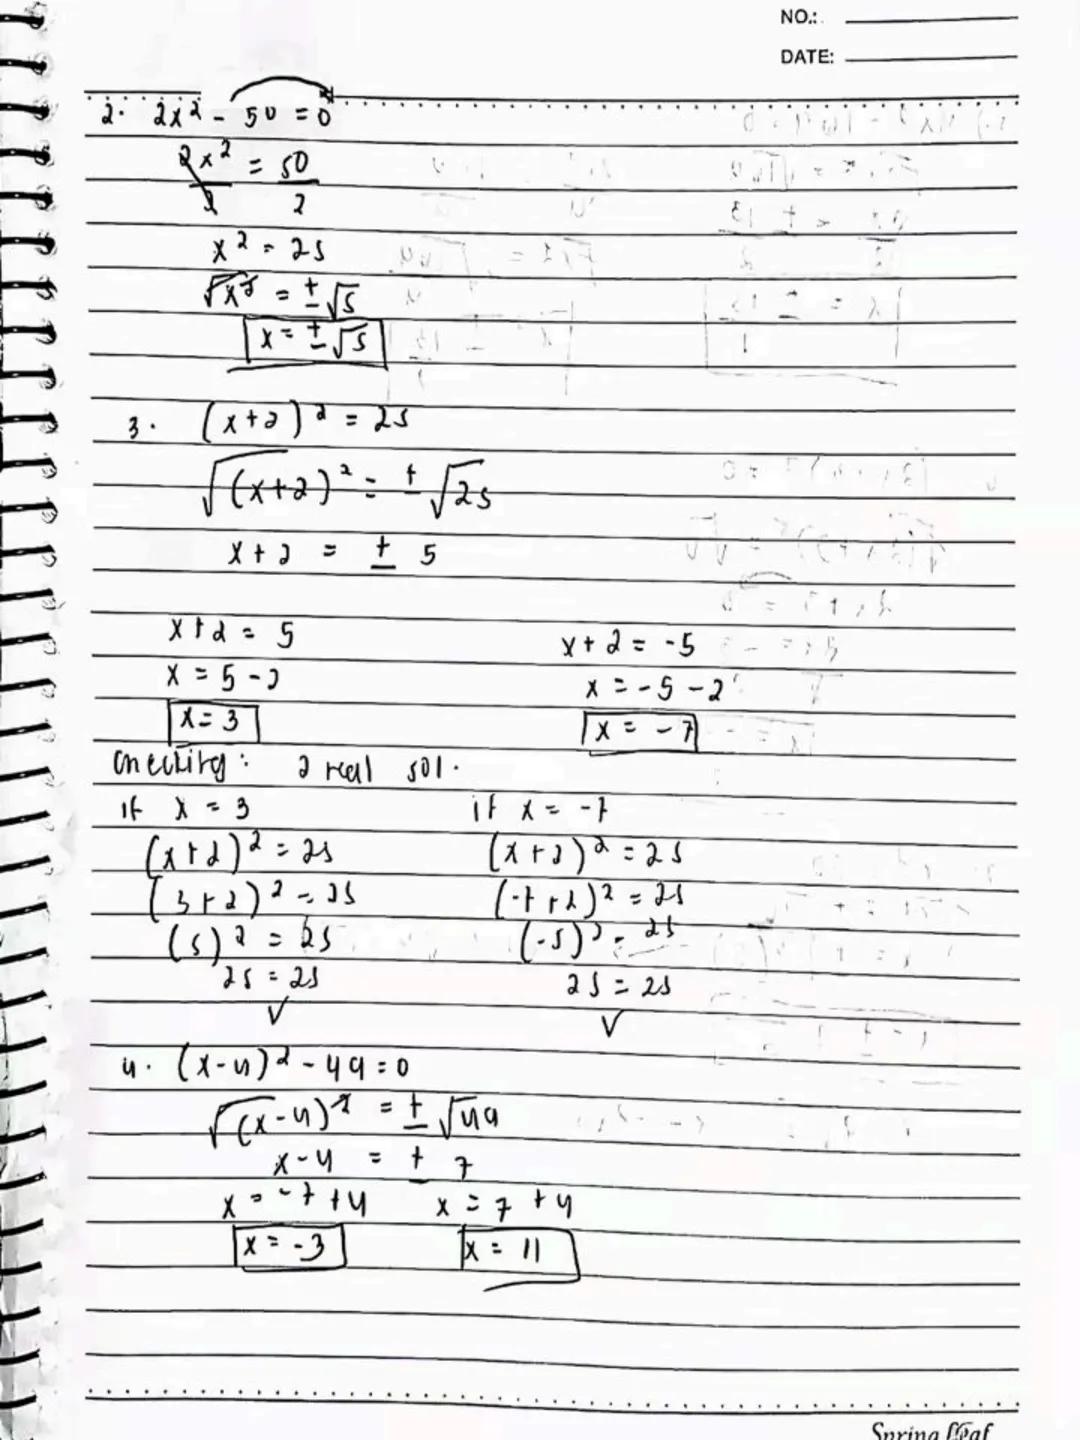 NO.:
DATE:
2. 2x² - 50 = 0
2x² = 50
2 2
x² = 25
√x² = ± √5
x = ± √5
3. (x+2)² = 25
√(x+2)² = ± √25
x+2 = ± 5
x+2 = 5 x+2 = -5
x = 5 - 2 x = -5 - 2
x = 3 x = -7
Checking: 2 real sol.
if x = 3 if x = -7
(x+2)² = 25 (x+2)² = 25
(3+2)² = 25 (-7+2)² = 25
(5)² = 25 (-5)² = 25
25 = 25 25 = 25
✓ ✓
4. (x-4)² - 49 = 0
√(x-4)² = ± √49
x-4 = ± 7
x = -7 + 4 x = 7 + 4
x = -3 x = 11
Spring Leaf